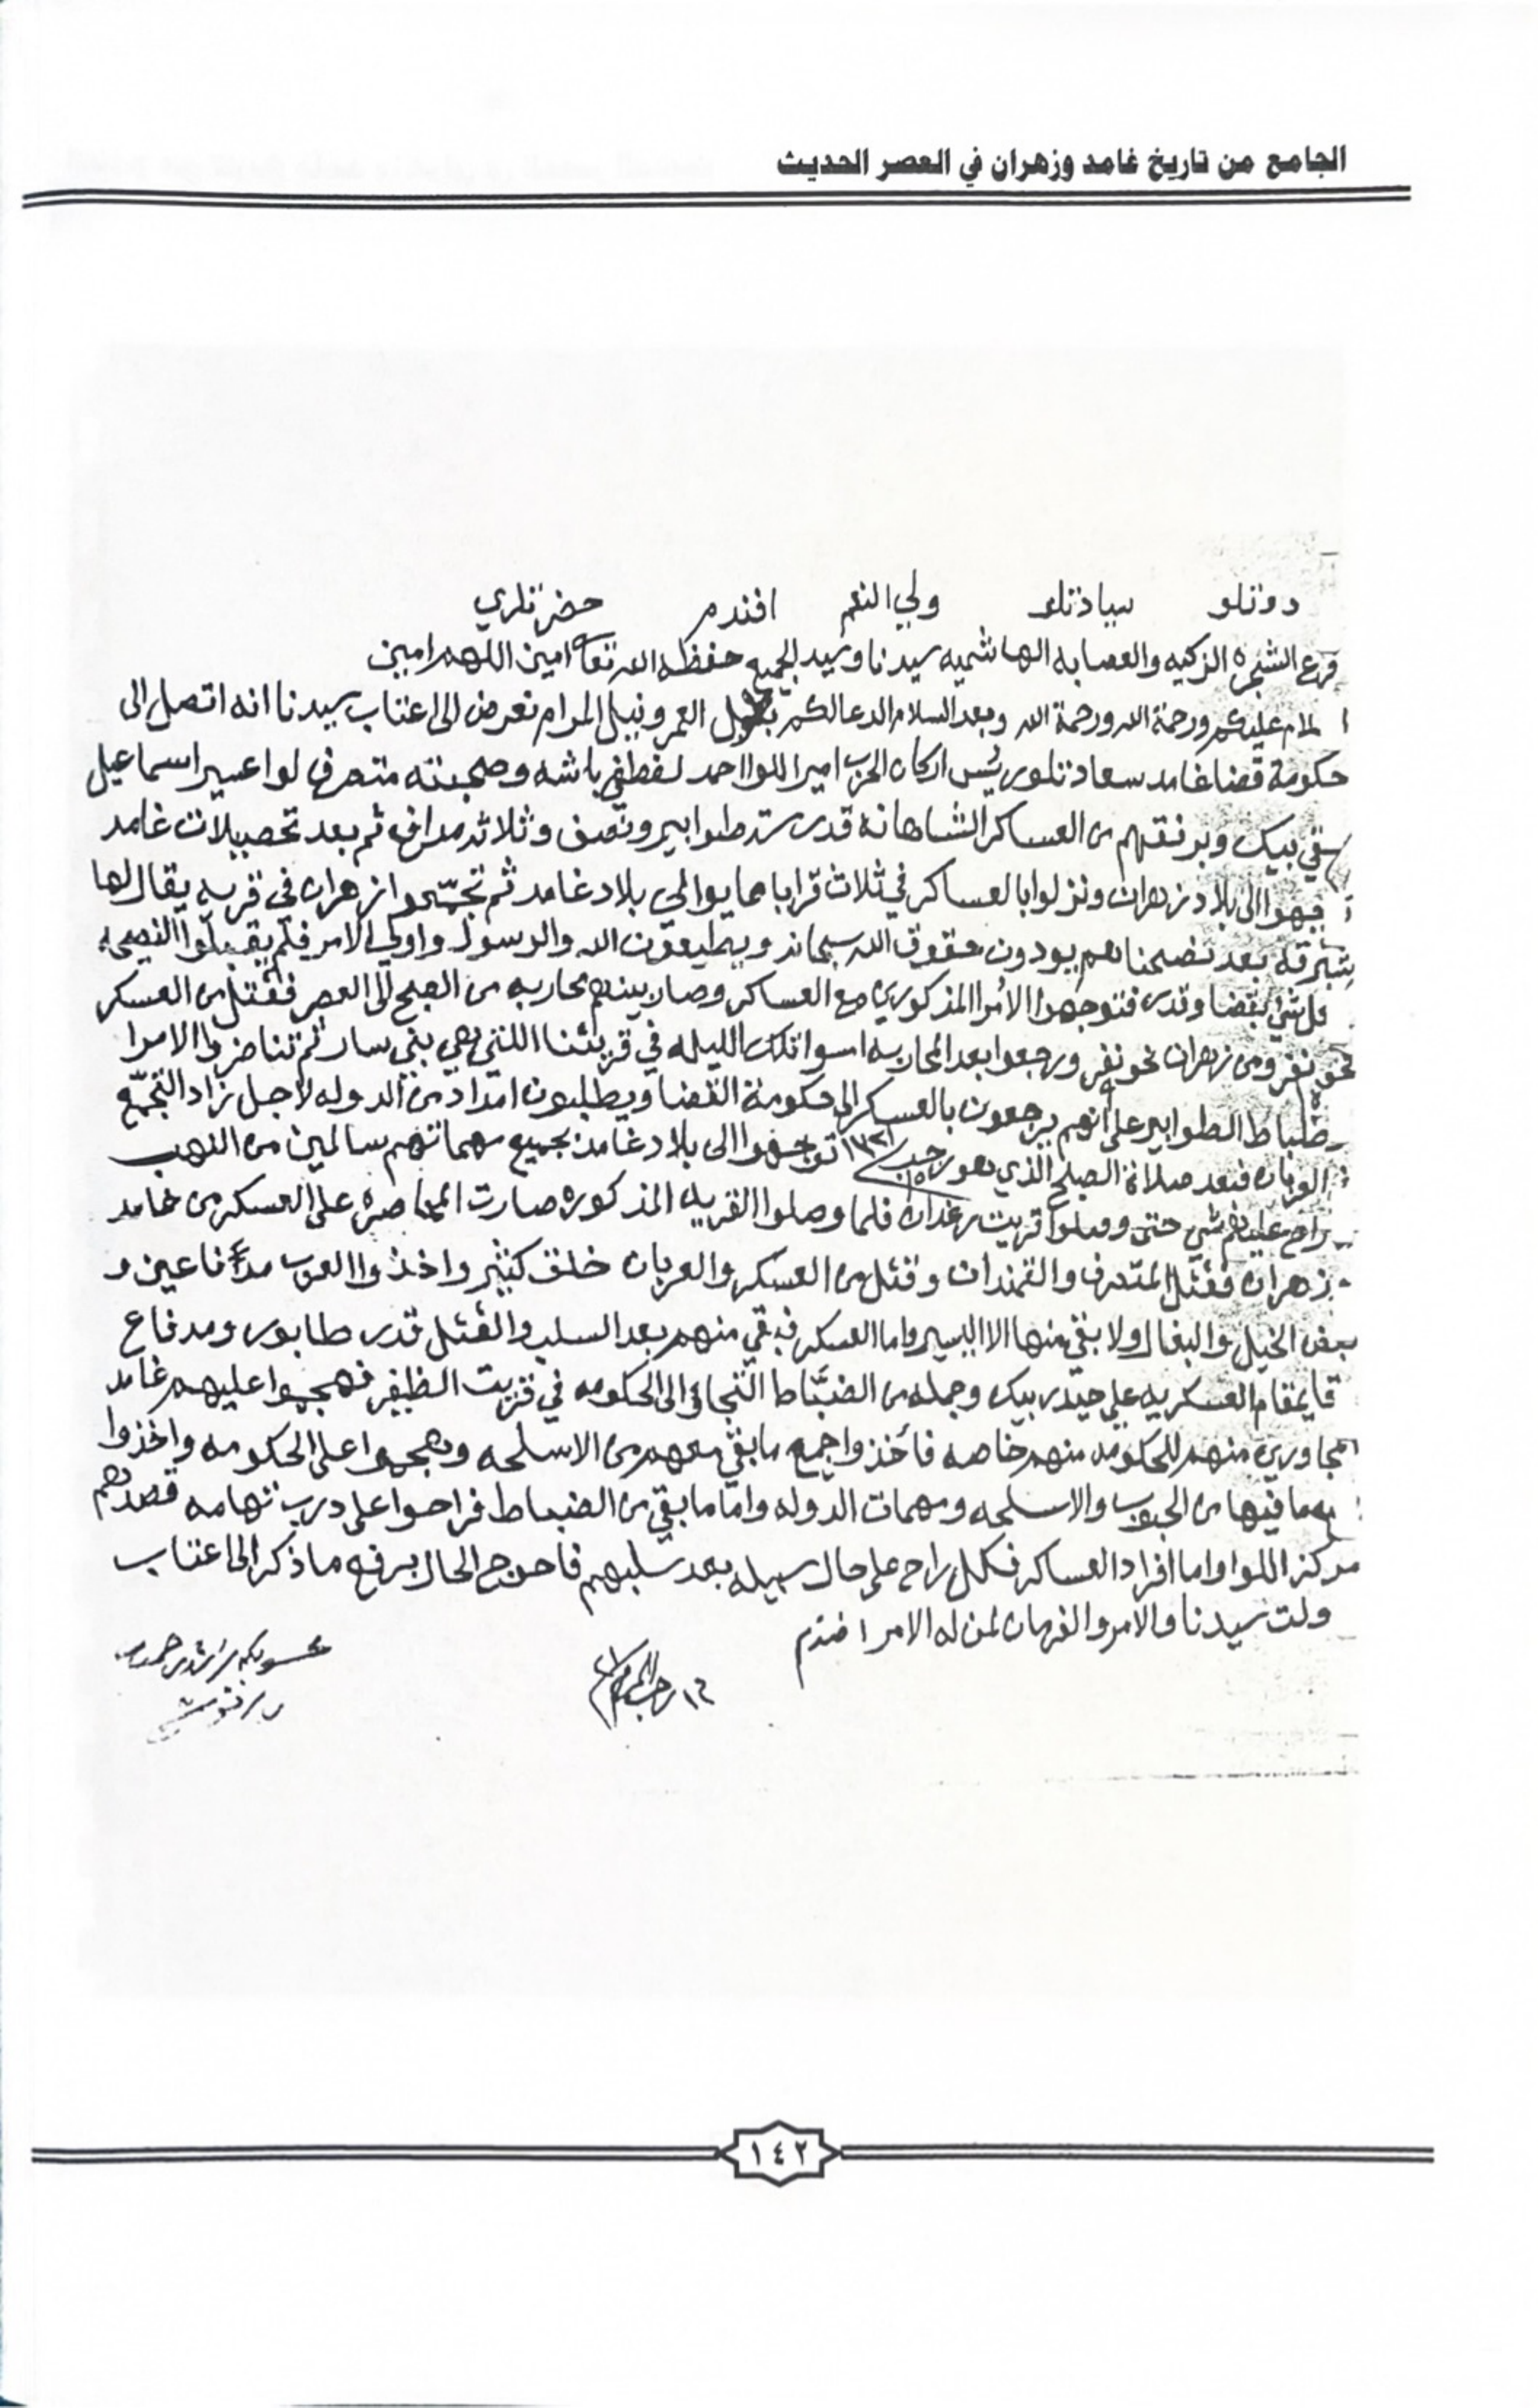 الجامع من تاريخ غامد وزهران في العصر الحديث
دولتلو سيادتلو ولي النعم افندم حضرتلري
فرع الشجره الزكيه والعصابه الهاشميه سيدنا وسيد الجميع حفظه الله تعالى امين اللهم امين
عليكم ورحمة الله ورحمة الله وبعد السلام الدعا لكم بطول العمر ونيل المرام نعرض الى اعتاب سيدنا انه اتصل الى
حكومة قضا غامد سعادتلو رئيس اركان الحرب امير اللوا احمد لطفي باشه وصحبته متصرف لوا عسير اسماعيل
حقي بيك وبرفقتهم من العساكر الشاهانه قدر سته طوابير ونصف وثلاثه مدافع ثم بعد تحصيلات غامد
الى بلاد زهران ونزلوا بالعساكر في ثلاث قرايا مما يوالي بلاد غامد ثم تجمّعوا زهران في قريه يقال لها
شبرقه بعد نصحناهم يودون حقوق الله سبحانه ويطيعون الله والرسول واولي الامر فلم يقبلوا النصيحه
شي بقضا وقدر فتوجهوا الأمرا المذكورين مع العساكر وصار بينهم محاربه من الصبح الى العصر فقتل من العسكر
نحو نفر ومن زهران نحو نفر ورجعوا بعد المحاربه امسوا تلك الليله في قريتنا اللتي هي بني سار ثم تناضروا الامرا
وضباط الطوابير على أنهم يرجعون بالعسكر الى حكومة القضا ويطلبون امداد من الدوله لاجل زاد التجمّع
العربان فبعد صلاة الصبح الذي هو رجب ١٣٢١ توجهوا الى بلاد غامد بجميع مهماتهم سالمين من النهب
راح عليهم شي حتى وصلوا قريت رغدان فلما وصلوا القريه المذكوره صارت المحاصره على العسكر من غامد
زهران فقتل المتصرف والقمندان وقتل من العسكر والعربان خلق كثير واخذوا العرب مدفاعين و
بعض الخيل والبغال ولا بقي منها الا اليسير واما العسكر فبقي منهم بعد السلب والقتل قدر طابور ومدفاع
قايمقام العسكريه علي حيدر بيك وجمله من الضبّاط التجاؤ الى الحكومه في قريت الظفير فهجموا عليهم غامد
المجاورين منهم للحكومه منهم خاصه فأخذوا جميع ما بقي معهم من الاسلحه وهجموا على الحكومه واخذوا
ما فيها من الحبوب والاسلحه ومهمات الدوله واما ما بقي من الضباط فراحوا على درب تهامه قصدهم
مركز اللوا واما افراد العساكر فكل راح على حال سبيله بعد سلبهم فاحوج الحال برفع ما ذكر الى اعتاب
دولت سيدنا والامر والفرمان لمن له الامر افندم
١٦ رجب
راشد
١٤٢